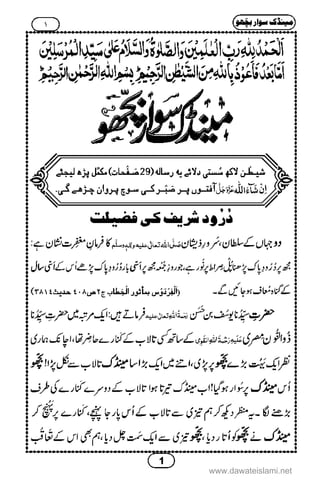 ۱
مینڈک سوار بچھو
اَلْحَمْدُ لِلّٰہِ رَبِّ الْعٰلَمِیْنَ وَالصَّلٰوۃُ وَالسَّلَامُ عَلٰی سَیِّدِ الْمُرْسَلِیْنَ
اَمَّا بَعْدُ فَاَعُوْذُ بِاللّٰہِ مِنَ الشَّیْطٰنِ الرَّجِیْمِ بِسْمِ اللّٰہِ الرَّحْمٰنِ الرَّحِیْمِ
مینڈک سوار بچھو
شیطٰن لاکھ سُستی دلائے یہ رسالہ (29 صَفَحات) مکمَّل پڑھ لیجئے
اِنْ شَآءَ اللّٰہ عَزَّوَجَلَّ آفتوں پر صَبْر کی سوچ پروان چڑھے گی۔
دُرُود شریف کی فضیلت
دو جہاں کے سلطان، سرورِ ذیشان صلَّی اللہ تعالٰی علیہ واٰلہٖ وسلَّم کا فرمانِ مغفِرت نشان ہے:
مجھ پر دُرُودِ پاک پڑھنا پُلْ صِراط پر نور ہے، جو روزِ جُمُعہ مجھ پر اَسّی بار دُرُودِ پاک پڑھے اُس کے اَسّی سال
کے گناہ مُعاف ہوجائیں گے۔ (اَلْفِرْدَوْس بمأثور الْخِطاب ج۲ ص۴۰۸ حدیث۳۸۱۴)
حضرتِ سیِّدُنا یوسُف بن حَسَن رَحْمَۃُ اللہِ تعالٰی علیہ فرماتے ہیں: ایک مرتبہ میں حضرتِ سیِّدُنا
ذُوالنُّون مِصری عَلَیْہِ رَحْمَۃُ اللہِ الْقَوِی کے ساتھ کسی تالاب کے کنارے حاضِر تھا، اچانک ہماری
نظر ایک بَہُت بڑے بچھو پر پڑی، اتنے میں ایک بڑا سا مینڈک تالاب سے نکل پڑا! بچھو
اُس مینڈک پر سُوار ہو گیا! اب مینڈک تیرتا ہوا تالاب کے دوسرے کنارے کی طرف
بڑھنے لگا۔ یہ منظر دیکھ کر ہم تیزی سے تالاب کے اُس پار جا پہنچے، کنارے پر پہنچ کر
مینڈک نے بچھو کو اُتار دیا، بچھو تیزی سے ایک سَمت چل دیا، ہم بھی اُس کے تَعاقُب
1
www.dawateislami.net